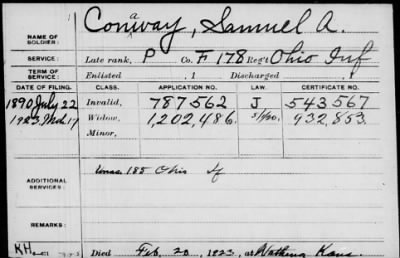 Conaway, Samuel A.
NAME OF SOLDIER:
SERVICE: Late rank, P Co. F 178 Reg't Ohio Inf
TERM OF SERVICE: Enlisted , 1 Discharged , 1
DATE OF FILING. CLASS. APPLICATION NO. LAW. CERTIFICATE NO.
1890 July 22 Invalid, 787562 J 543567
1923 Mch 17 Widow, 1,202,486. 932,853.
Minor,
ADDITIONAL SERVICES: 185 Ohio Inf
REMARKS:
KH
Died Feb. 20, 1923, at Wathena Kans.